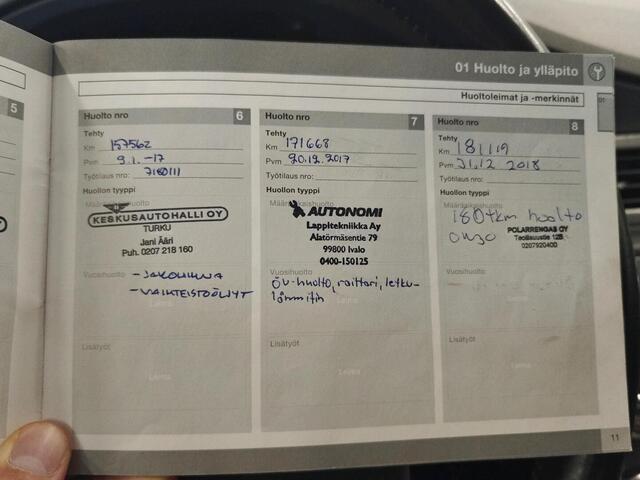 01 Huolto ja ylläpito
Huoltoleimat ja -merkinnät
01
5
Huolto nro 6
Tehty
Km 157562
Pvm 9.1.-17
Työtilaus nro: 7180111
Huollon tyyppi
Määräaikaishuolto
KESKUSAUTOHALLI OY
TURKU
Jani Ääri
Puh. 0207 218 160
Vuosihuolto
- JAKOHIHNA
- VAIHTEISTOÖLJYT
Leima
Lisätyöt
Leima
Huolto nro 7
Tehty
Km 171668
Pvm 20.12.2017
Työtilaus nro:
Huollon tyyppi
AUTONOMI
Lappitekniikka Ay
Alatörmäsentie 79
99800 Ivalo
0400-150125
Vuosihuolto
öv-huolto, roittari, letku-
lämmitin
Lisätyöt
Leima
Huolto nro 8
Tehty
Km 181119
Pvm 31.12 2018
Työtilaus nro:
Huollon tyyppi
Määräaikaishuolto
180tkm huolto
POLARRENGAS OY
Teollisuustie 12B
0207920400
Vuosihuolto
Lisätyöt
Leima
11